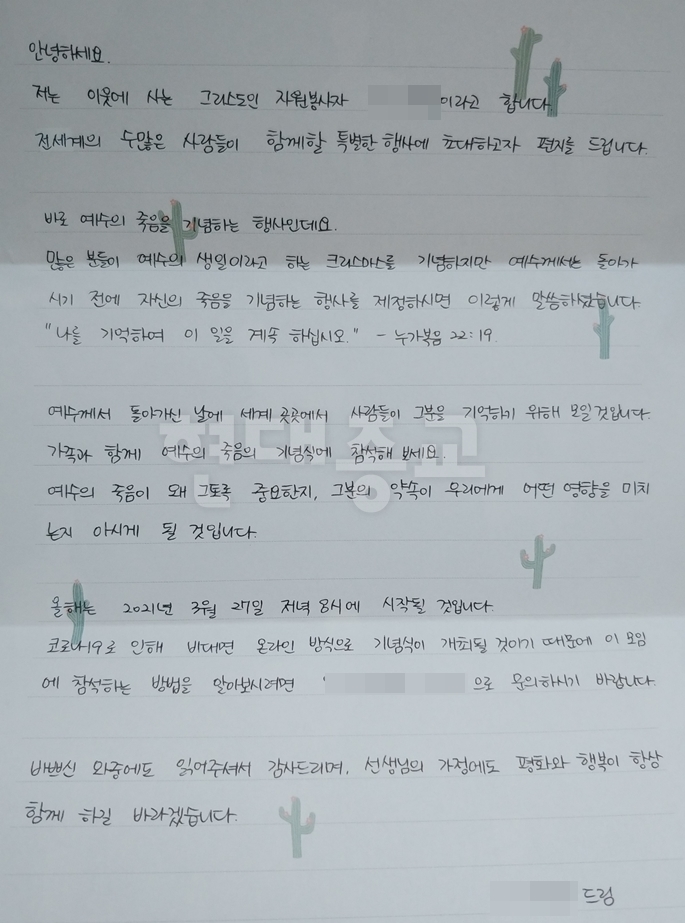 안녕하세요.
저는 이웃에 사는 그리스도인 자원봉사자 이라고 합니다.
전세계의 수많은 사람들이 함께할 특별한 행사에 초대하고자 편지를 드립니다.
바로 예수의 죽음을 기념하는 행사인데요.
많은 분들이 예수의 생일이라고 하는 크리스마스를 기념하지만 예수께서는 돌아가
시기 전에 자신의 죽음을 기념하는 행사를 제정하시면 이렇게 말씀하셨습니다.
"나를 기억하여 이 일을 계속 하십시오." - 누가복음 22:19.
예수께서 돌아가신 날에 세계 곳곳에서 사람들이 그분을 기억하기 위해 모일것입니다.
가족과 함께 예수의 죽음의 기념식에 참석해 보세요.
현대종교
예수의 죽음이 왜 그토록 중요한지, 그분의 약속이 우리에게 어떤 영향을 미치
는지 아시게 될 것입니다.
올해는 2021년 3월 27일 저녁 8시에 시작될 것입니다.
코로나19로 인해 비대면 온라인 방식으로 기념식이 개최될 것이기 때문에 이 모임
에 참석하는 방법을 알아보시려면 으로 문의하시기 바랍니다.
바쁘신 와중에도 읽어주셔서 감사드리며, 선생님의 가정에도 평화와 행복이 항상
함께 하길 바라겠습니다.
드림